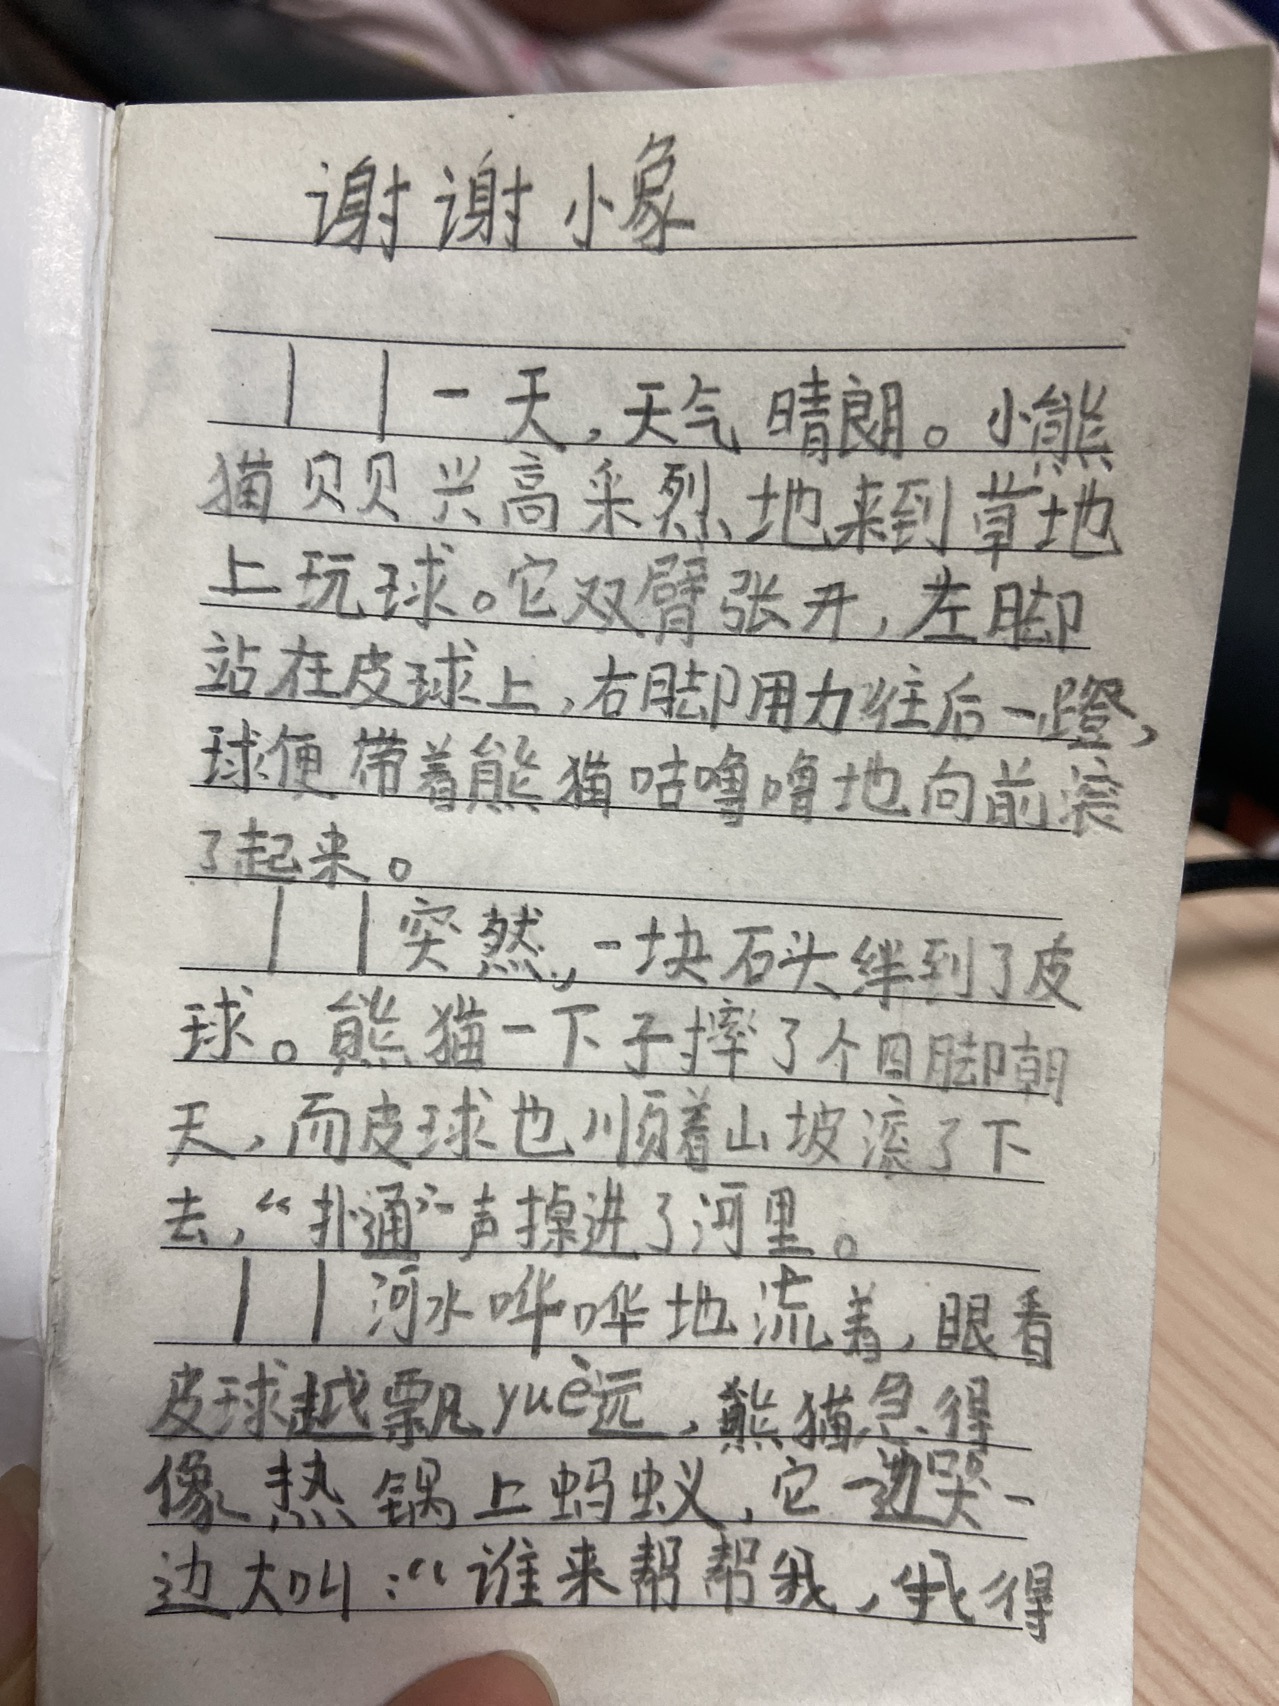 谢谢小象
一天,天气晴朗。小熊
猫贝贝兴高采烈地来到草地
上玩球。它双臂张开,左脚
站在皮球上,右脚用力往后一蹬,
球便带着熊猫咕噜噜地向前滚
了起来。
突然,一块石头绊到了皮
球。熊猫一下子摔了个四脚朝
天,而皮球也顺着山坡滚了下
去,“扑通”一声掉进了河里。
河水哗哗地流着,眼看
皮球越飘yuè远,熊猫急得
像热锅上蚂蚁,它一边哭一
边大叫:“谁来帮帮我,我得